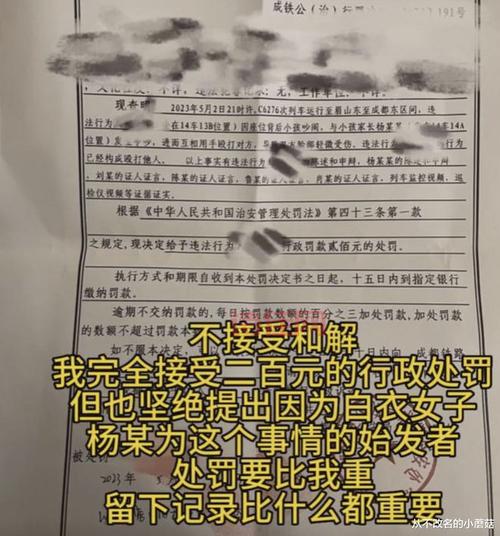 成铁公(治)行
191号
无,工作单位
现查明
2023年5月2日21时许,C6276次列车运行至眉山东至成都东区间,违
法行为
在14车13B位置)因座位背后小孩吵闹,与小孩家长杨某
14车14A
位置)发生
,进而互相用手殴打对方,
轻微受伤,违法行为
已经构成殴打他人。 以上事实有违法行为
陈述和申辩,杨某
、刘某的证人证言,陈某的证人证言,鲁某的证人证言,肖某的证人证言,列车监控视频,巡
检仪视频等证据证实。
根据《中华人民共和国治安管理处罚法》第四十三条第一款
之规定,现决定给予违法行为
行政罚款贰佰元的处罚。
执行方式和期限自收到本处罚决定书之日起,十五日内到指定银行
缴纳罚款。
逾期不交纳罚款的,每日按罚款数额的百分之三加处罚款,加处罚款
的数额不超过罚款本
如不服本决定,
十日内向
成都铁路
不接受和解
我完全接受二百元的行政处罚
但也坚绝提出因为白衣女子
杨某为这个事情的始发者
处罚要比我重
留下记录比什么都重要
被处罚
2023年5月
从不改名的小蘑菇